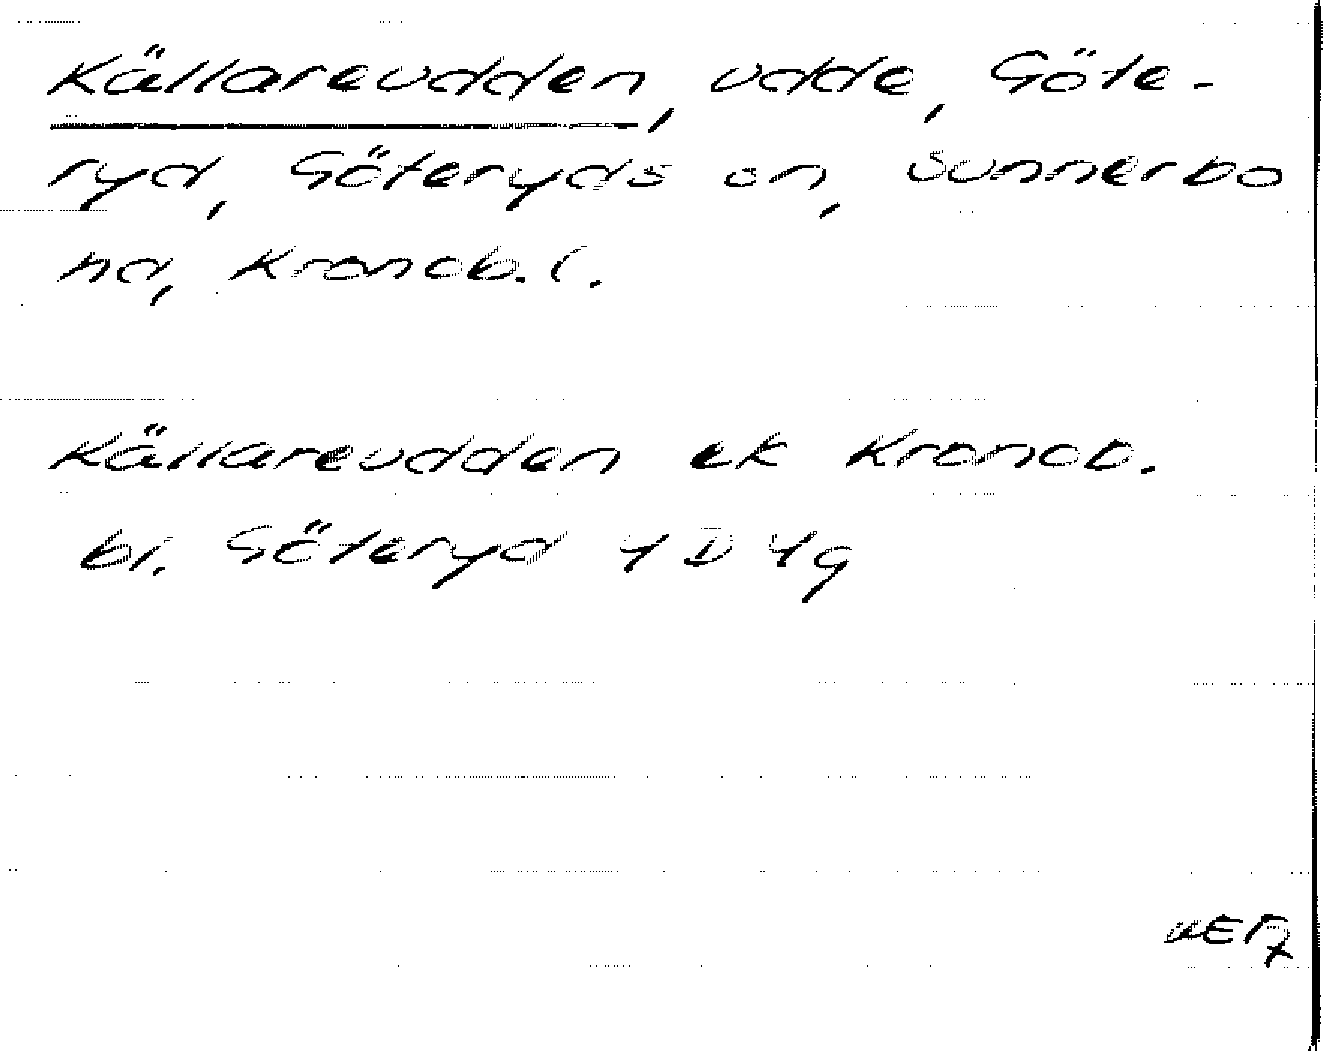 Källareudden, udde, Göte-
ryd, Göteryds sn, Sunnerbo
hd, Kronob. l.
Källareudden ek Kronob.
bl. Göteryd 4D4g